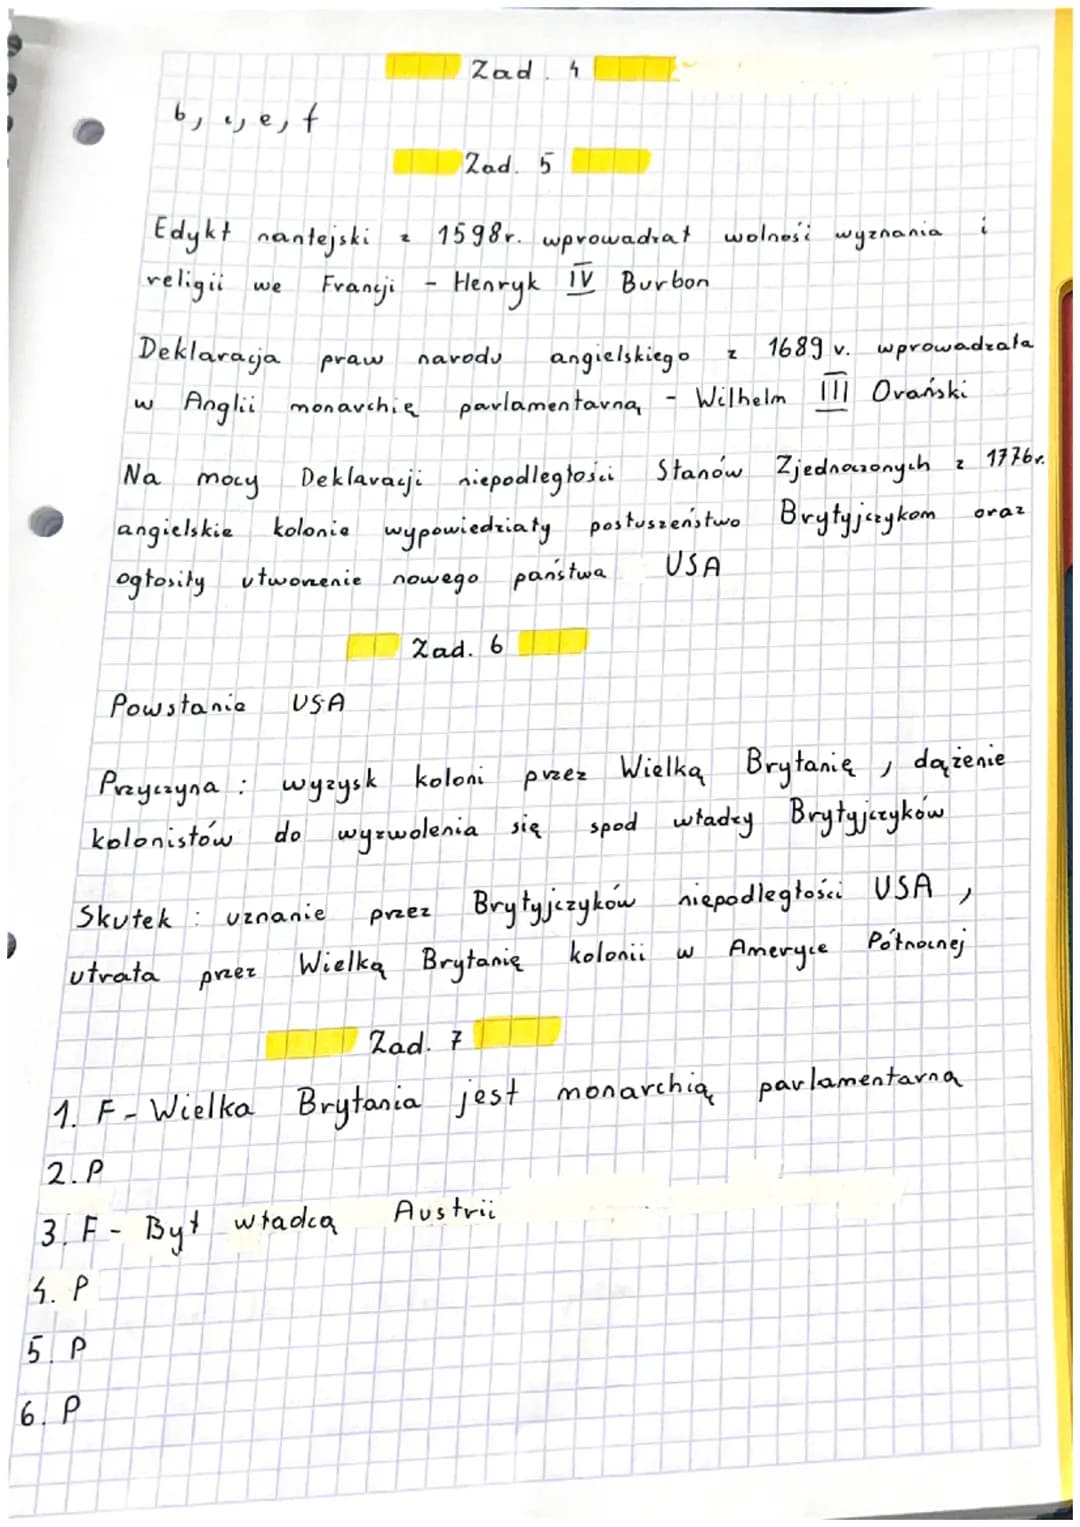 Zad. 4
b, c, e, f
Zad. 5
Edykt nantejski z 1598r. wprowadzał wolność wyznania i
religii we Francji - Henryk IV Burbon
Deklaracja praw narodu angielskiego z 1689 r. wprowadzała
w Anglii monarchię parlamentarną - Wilhelm III Orański
Na mocy Deklaracji niepodległości Stanów Zjednoczonych z 1776r.
angielskie kolonie wypowiedziały posłuszeństwo Brytyjczykom oraz
ogłosiły utworzenie nowego państwa USA
Zad. 6
Powstanie USA
Przyczyna : wyzysk koloni przez Wielką Brytanię, dążenie
kolonistów do wyzwolenia się spod władzy Brytyjczyków
Skutek : uznanie przez Brytyjczyków niepodległości USA,
utrata przez Wielką Brytanię kolonii w Ameryce Północnej
Zad. 7
1. F - Wielka Brytania jest monarchią parlamentarną
2. P
3. F - Był władcą Austrii
4. P
5. P
6. P